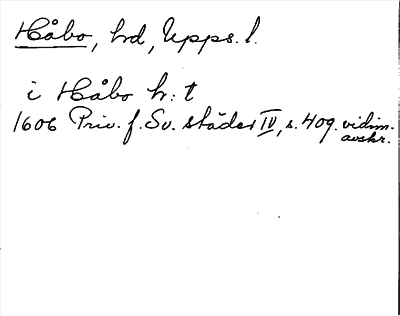 Håbo, hd, Upps. l.
i Håbo h:t
1606 Priv. f. Sv. städer IV, s. 409. vidim. avskr.